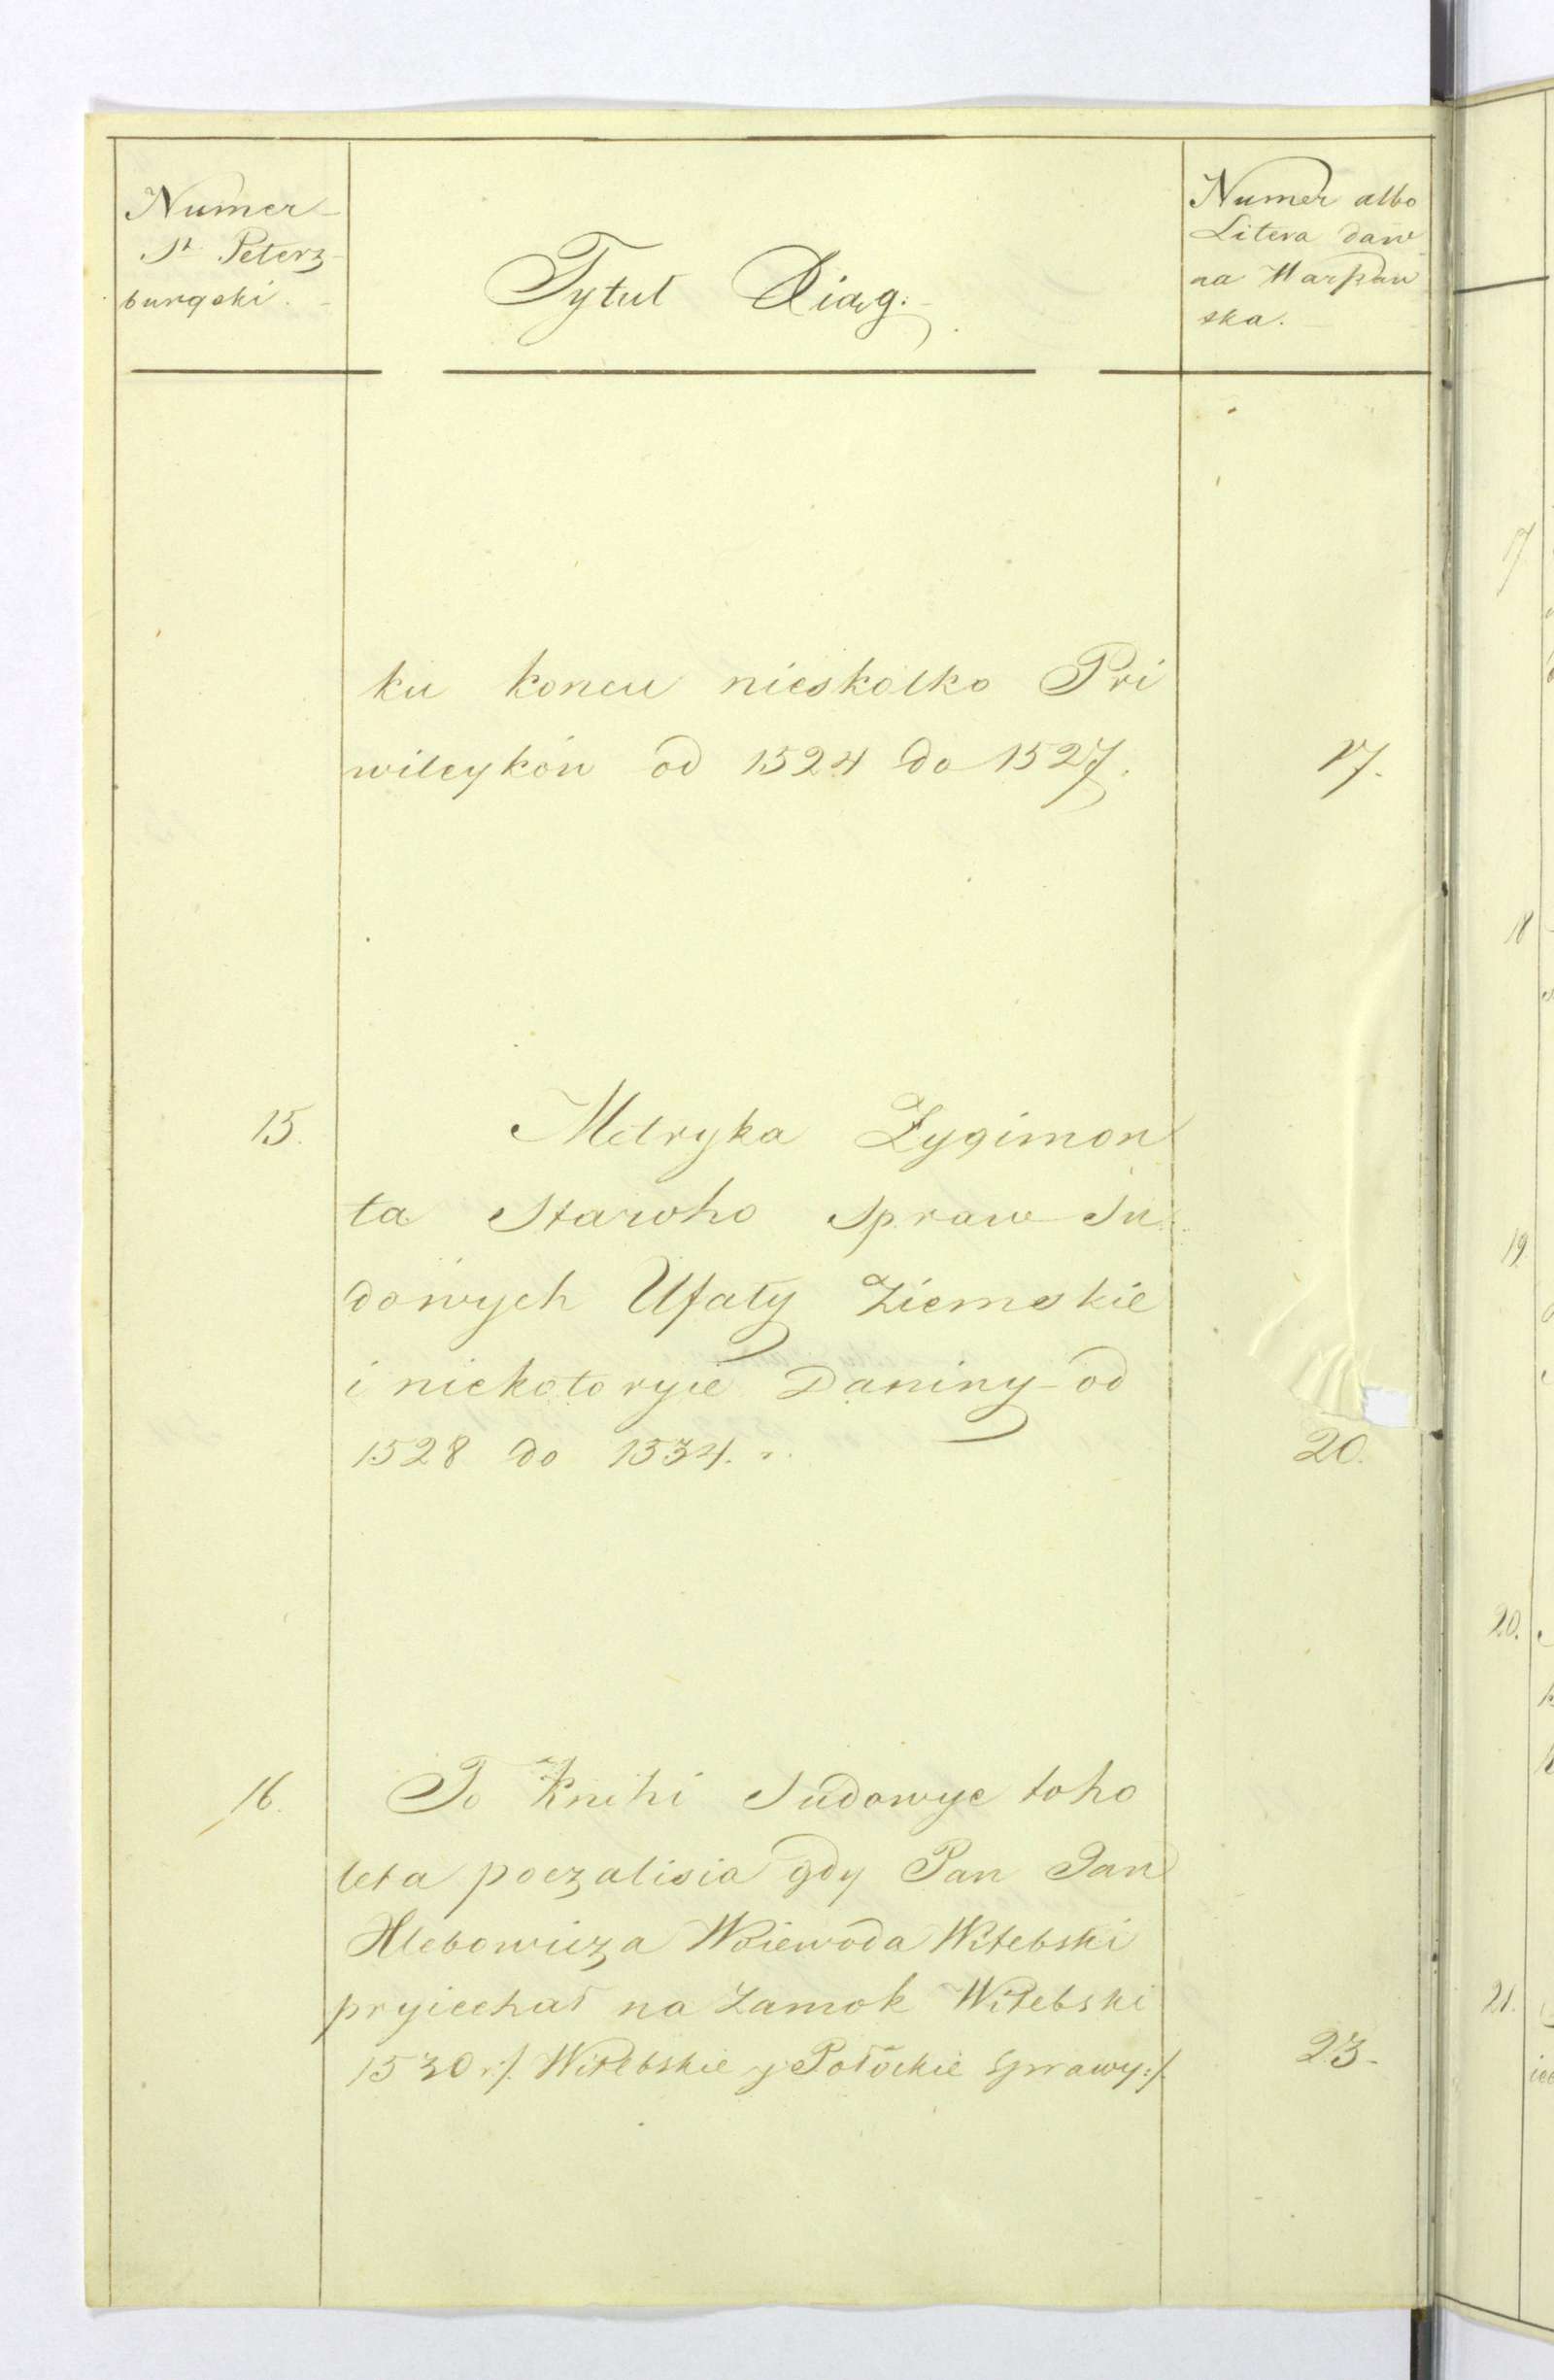 Numer
St. Peterz-
burgski.
Tytuł Xiąg.
Numer albo
Litera daw
na Warszaw
ska.
ku koncu nieskolko Pri
wileykow od 1524 do 1527.
17.
15.
Metryka Zygimon
ta Staroho Spraw Su
dowych Ufały Ziemskie
i niekotoryie Daniny od
1528 do 1534.
20.
16.
To Knihi Sudowye toho
leta poczalisia gdy Pan Jan
Hlebowicza Woiewoda Witebski
pryiechał na Zamok Witebski
1530 :/. Witebskie y Połockie Sprawy :/.
23.
17
18
19.
20.
21.